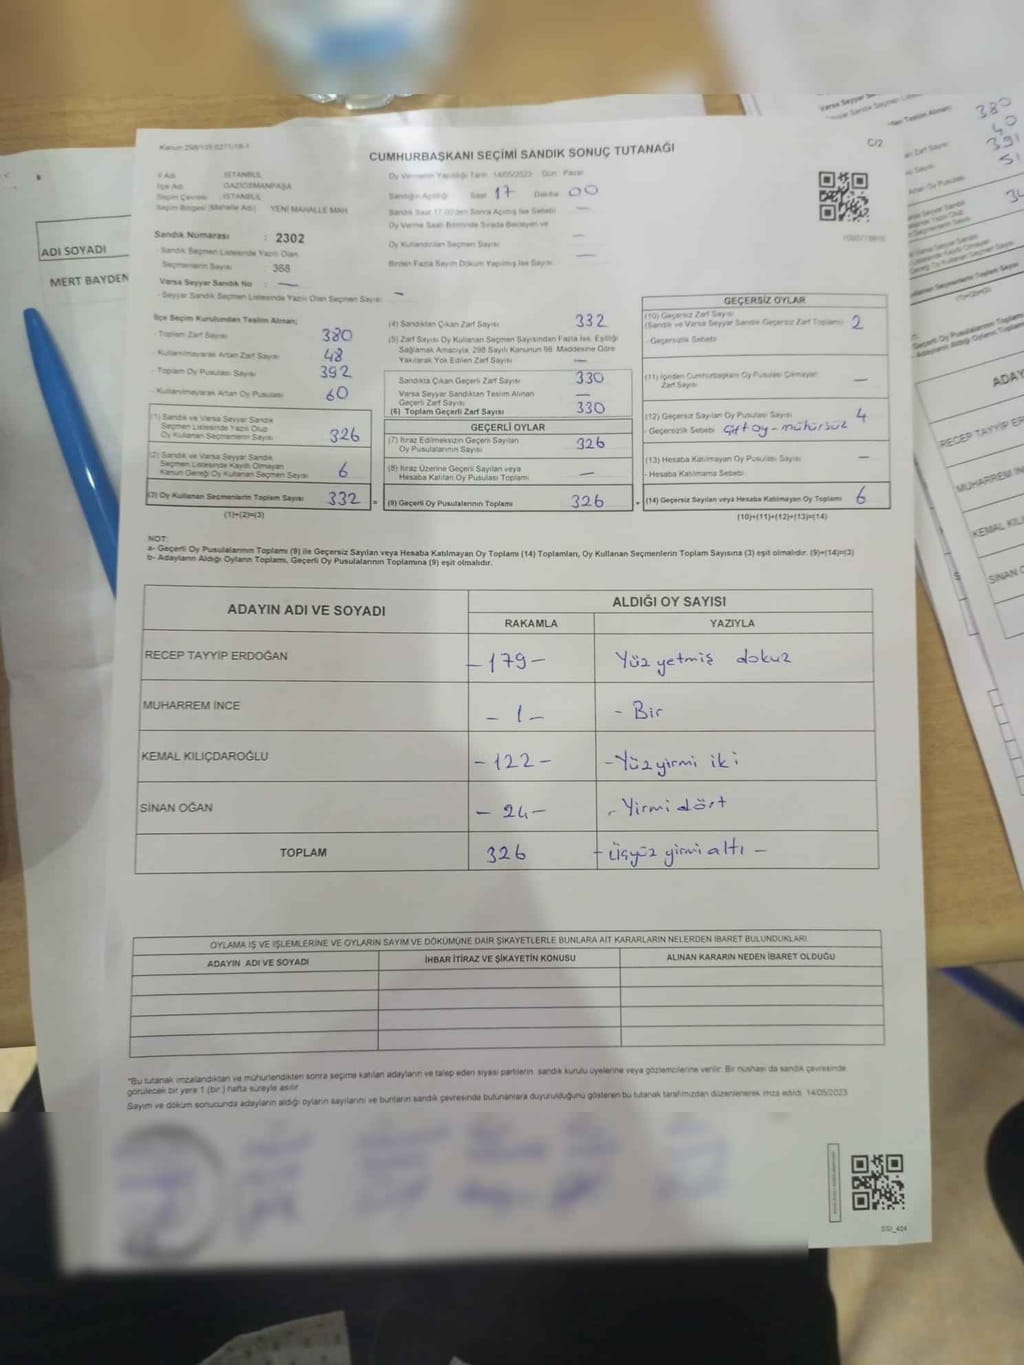 Kanun 298/105-6271/18-1
C/2
CUMHURBAŞKANI SEÇİMİ SANDIK SONUÇ TUTANAĞI
İl Adı : İSTANBUL
İlçe Adı : GAZİOSMANPAŞA
Seçim Çevresi : İSTANBUL
Seçim Bölgesi (Mahalle Adı) : YENİ MAHALLE MAH
Sandık Numarası : 2302
Sandık Seçmen Listesinde Yazılı Olan
Seçmenlerin Sayısı : 368
Varsa Seyyar Sandık No : —
- Seyyar Sandık Seçmen Listesinde Yazılı Olan Seçmen Sayısı : —
Oy Vermenin Yapıldığı Tarih 14/05/2023 Gün Pazar
Sandığın Açıldığı Saat 17 Dakika 00
Sandık Saat 17:00'den Sonra Açılmış İse Sebebi —
Oy Verme Saati Bitiminde Sırada Bekleyen ve
Oy Kullandırılan Seçmen Sayısı —
Birden Fazla Sayım Döküm Yapılmış İse Sayısı —
İlçe Seçim Kurulundan Teslim Alınan;
- Toplam Zarf Sayısı 380
- Kullanılmayarak Artan Zarf Sayısı 48
- Toplam Oy Pusulası Sayısı 392
- Kullanılmayarak Artan Oy Pusulası 60
(1) Sandık ve Varsa Seyyar Sandık
Seçmen Listesinde Yazılı Olup
Oy Kullanan Seçmenlerin Sayısı 326
(2) Sandık ve Varsa Seyyar Sandık
Seçmen Listesinde Kayıtlı Olmayan
Kanun Gereği Oy Kullanan Seçmen Sayısı 6
(3) Oy Kullanan Seçmenlerin Toplam Sayısı 332 =
(1)+(2)=(3)
(4) Sandıktan Çıkan Zarf Sayısı 332
(5) Zarf Sayısı Oy Kullanan Seçmen Sayısından Fazla İse, Eşitliği
Sağlamak Amacıyla, 298 Sayılı Kanunun 98. Maddesine Göre
Yakılarak Yok Edilen Zarf Sayısı —
Sandıkta Çıkan Geçerli Zarf Sayısı 330
Varsa Seyyar Sandıktan Teslim Alınan
Geçerli Zarf Sayısı —
(6) Toplam Geçerli Zarf Sayısı 330
GEÇERLİ OYLAR
(7) İtiraz Edilmeksizin Geçerli Sayılan
Oy Pusulalarının Sayısı 326
(8) İtiraz Üzerine Geçerli Sayılan veya
Hesaba Katılan Oy Pusulası Toplamı —
(9) Geçerli Oy Pusulalarının Toplamı 326 +
GEÇERSİZ OYLAR
(10) Geçersiz Zarf Sayısı
(Sandık ve Varsa Seyyar Sandık Geçersiz Zarf Toplamı) 2
- Geçersizlik Sebebi
(11) İçinden Cumhurbaşkanı Oy Pusulası Çıkmayan
Zarf Sayısı —
(12) Geçersiz Sayılan Oy Pusulası Sayısı 4
- Geçersizlik Sebebi Çift oy - mühürsüz
(13) Hesaba Katılmayan Oy Pusulası Sayısı —
- Hesaba Katılmama Sebebi
(14) Geçersiz Sayılan veya Hesaba Katılmayan Oy Toplamı 6
(10)+(11)+(12)+(13)=(14)
NOT:
a- Geçerli Oy Pusulalarının Toplamı (9) ile Geçersiz Sayılan veya Hesaba Katılmayan Oy Toplamı (14) Toplamları, Oy Kullanan Seçmenlerin Toplam Sayısına (3) eşit olmalıdır. (9)+(14)=(3)
b- Adayların Aldığı Oyların Toplamı, Geçerli Oy Pusulalarının Toplamına (9) eşit olmalıdır.
ADAYIN ADI VE SOYADI
ALDIĞI OY SAYISI
RAKAMLA YAZIYLA
RECEP TAYYİP ERDOĞAN -179- Yüz yetmiş dokuz
MUHARREM İNCE - 1 - - Bir
KEMAL KILIÇDAROĞLU -122- -Yüz yirmi iki
SİNAN OĞAN - 24- - Yirmi dört
TOPLAM 326 - üçyüz yirmi altı -
OYLAMA İŞ VE İŞLEMLERİNE VE OYLARIN SAYIM VE DÖKÜMÜNE DAİR ŞİKAYETLERLE BUNLARA AİT KARARLARIN NELERDEN İBARET BULUNDUKLARI
ADAYIN ADI VE SOYADI İHBAR İTİRAZ VE ŞİKAYETİN KONUSU ALINAN KARARIN NEDEN İBARET OLDUĞU
*Bu tutanak imzalandıktan ve mühürlendikten sonra seçime katılan adayların ve talep eden siyasi partilerin sandık kurulu üyelerine veya gözlemcilerine verilir. Bir nüshası da sandık çevresinde
görülecek bir yere 1 (bir) hafta süreyle asılır.
Sayım ve döküm sonucunda adayların aldığı oyların sayılarını ve bunların sandık çevresinde bulunanlara duyurulduğunu gösteren bu tutanak tarafımızdan düzenlenerek imza edildi. 14/05/2023
SSI_404
ADI SOYADI
MERT BAYDEN
380
40
391
51
ADAY
RECEP TAYYİP ER
MUHARREM İNC
KEMAL KILI
SİNAN O